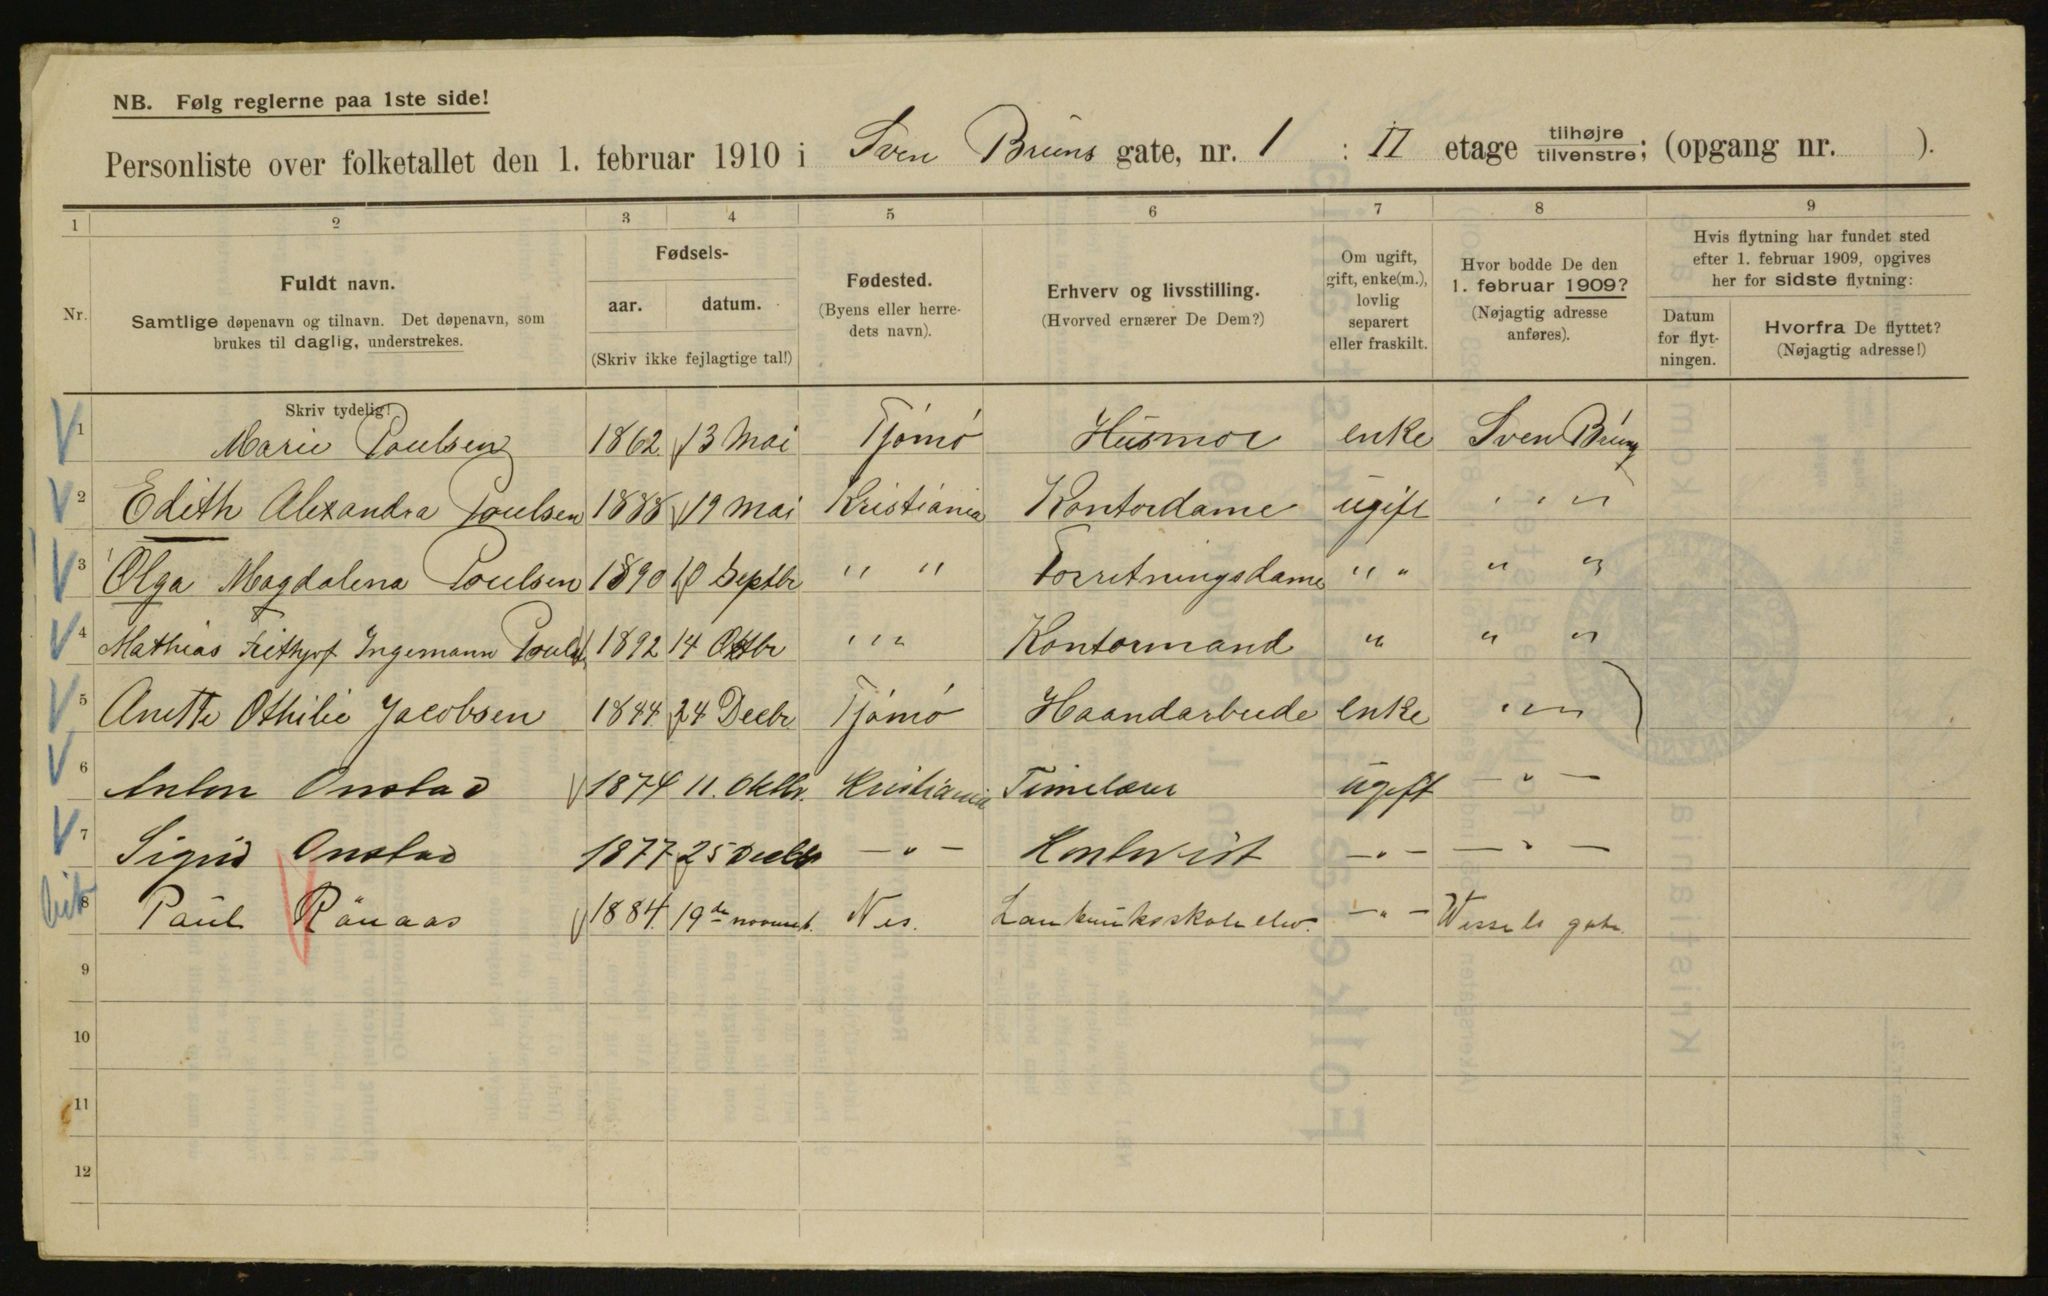 NB. Følg reglerne paa 1ste side!
Personliste over folketallet den 1. februar 1910 i Sven Bruns gate, nr. 1 : II etage tilhøjre tilvenstre; (opgang nr. ).
1 2 3 4 5 6 7 8 9
Nr.
Fuldt navn.
Samtlige døpenavn og tilnavn. Det døpenavn, som
brukes til daglig, understrekes.
Fødsels-
aar. datum.
(Skriv ikke fejlagtige tal!)
Fødested.
(Byens eller herre-
dets navn).
Erhverv og livsstilling.
(Hvorved ernærer De Dem?)
Om ugift,
gift, enke(m.),
lovlig
separert
eller fraskilt.
Hvor bodde De den
1. februar 1909?
(Nøjagtig adresse
anføres).
Hvis flytning har fundet sted
efter 1. februar 1909, opgives
her for sidste flytning:
Datum
for flyt-
ningen.
Hvorfra De flyttet?
(Nøjagtig adresse!)
Skriv tydelig!
1 Marie Poulsen 1862 13 Mai Tjømø Husmor enke Sven Bruns
2 Edith Alexandra Poulsen 1888 19 Mai Kristiania Kontordame ugift " " "
3 Olga Magdalena Poulsen 1890 10 Septbr " " Forretningsdame " " " "
4 Mathias Frithjof Ingemann 1892 14 Oktbr " " Kontormand " " "
5 Anette Othilie Jacobsen 1844 24 Decbr. Tjømø Haandarbeide enke " " "
6 Anton Onstad 1874 11. Oktbr. Kristiania Timelærer ugift — " —
7 Sigrid Onstad 1877 25 Decbr — " — — " — — " —
8 Paul Rönaas 1884. 19de novemb. Nes. — " — Wessels gate.
9
10
11
12